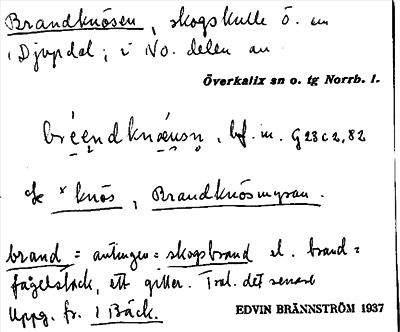 Brandknösen, skogskulle Ö. om
1 Djupdal; i No. delen av
Överkalix sn o. tg Norrb. l.
bréendknøusn, bf. m. G23c2,82
Je × knös, Brandknösmyran.
brand = antingen = skogsbrand el. brand =
fågelstack, ett giller. Trol. det senare
Uppg. fr. 1 Bäck.
EDVIN BRÄNNSTRÖM 1937